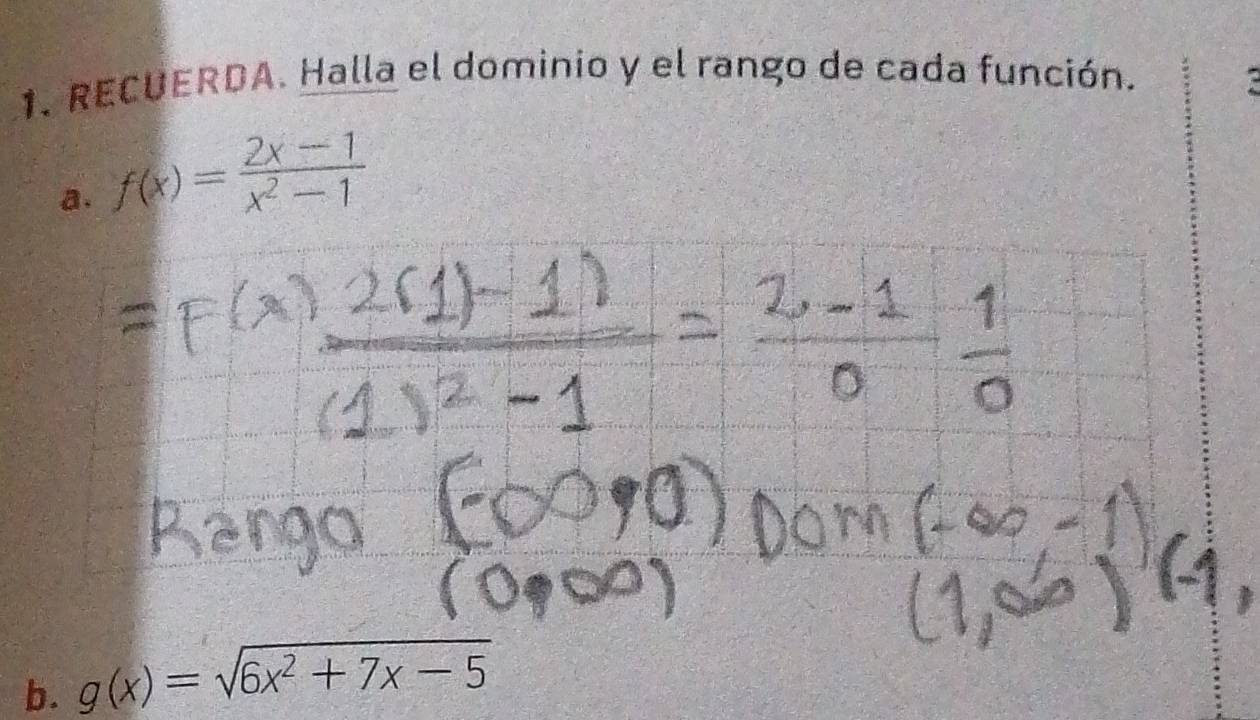 1. RECUERDA. Halla el dominio y el rango de cada función.
a. f(x) = (2x - 1)/(x² - 1)
= F(x) (2(1)-1))/((1)² -1) = (2-1)/0 1/0
Rango (-∞,0) Dom (-∞,-1) (-1,
(0,∞) (1,∞)
b. g(x) = √(6x² + 7x - 5)